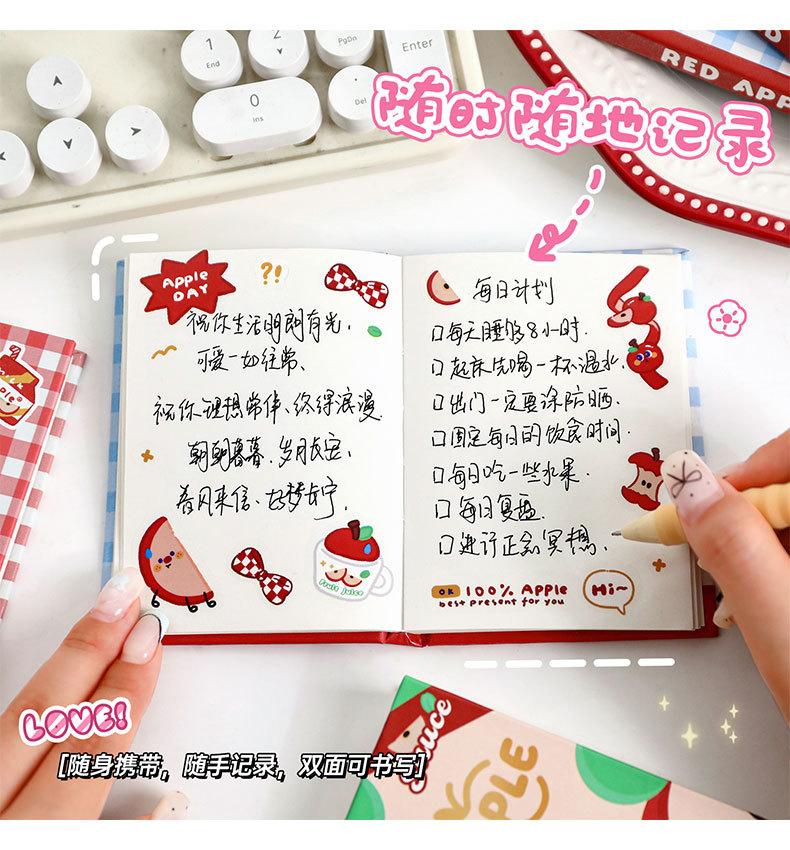 1
End
2
PgDn
Enter
0
Ins
Del
RED APP
随时随地记录
Apple
DAY
?!
祝你生活明朗有光,
可爱一如往常、
祝你理想常伴、终得浪漫.
朝朝暮暮.岁月长安,
春风来信、好梦长宁,
Fruit juice
每日计划
口每天睡够8小时.
口起床先喝一杯温水.
口出门一定要涂防晒.
口固定每日的饮食时间.
口每日吃一些水果.
口每日复盘.
口进行正念冥想.
OK 100% Apple
best present for you
Hi~
LOVE!
[随身携带，随手记录，双面可书写]